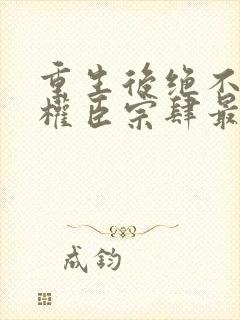 重生後绝不
權臣宗肆最
成鈞